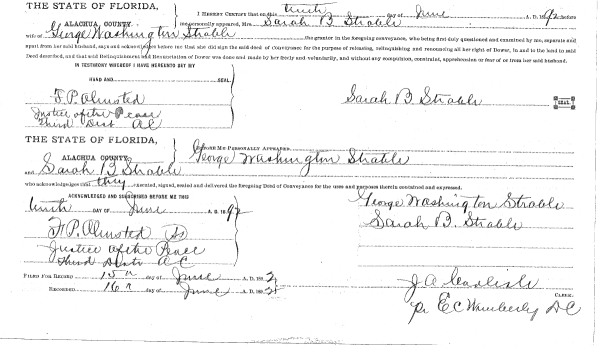 THE STATE OF FLORIDA,
ALACHUA COUNTY.
I HEREBY CERTIFY that on this tenth day of June A. D. 1892, before
me personally appeared, Mrs. Sarah B Strable
wife of George Washington Strable the grantor in the foregoing conveyance, who being first duly questioned and examined by me, separate and
apart from her said husband, says and acknowledges before me that she did sign the said deed of Conveyance for the purpose of releasing, relinquishing and renouncing all her right of Dower, in and to the land in said
Deed described, and that said Relinquishment and Renunciation of Dower was done and made by her freely and voluntarily, and without any compulsion, constraint, apprehension or fear of or from her said husband.
IN TESTIMONY WHEREOF I HAVE HEREUNTO SET MY
HAND AND SEAL.
F. P. Olmsted
Justice of the Peace
Third Dist A C
Sarah B Strable SEAL.
THE STATE OF FLORIDA,
ALACHUA COUNTY.
BEFORE ME PERSONALLY APPEARED George Washington Strable
and Sarah B Strable
who acknowledges that they executed, signed, sealed and delivered the foregoing Deed of Conveyance for the uses and purposes therein contained and expressed.
ACKNOWLEDGED AND SUBSCRIBED BEFORE ME THIS
tenth DAY OF June A. D. 1892
F. P. Olmsted
Justice of the Peace
Third Dist A C
George Washington Strable
Sarah B. Strable
FILED FOR RECORD 15 day of June A. D. 1892
RECORDED 16 day of June A. D. 1892
J A Carlisle
CLERK.
pr E C Wimberly D C